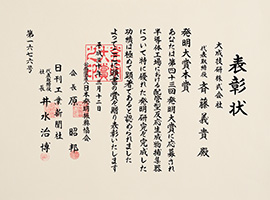 表彰状
大成技研株式会社
代表取締役 斉藤義貴 殿
発明大賞本賞
あなたは第四十三回発明大賞に応募され
半導体工場における配管型反応生成物捕集器
について特に優れた発明研究を完成した
功績は極めて顕著であると認められました
よってここに顕書の賞を贈り表彰いたします
平成三十年三月十二日
日本発明振興協会
会長 原昭邦
日刊工業新聞社
代表取締役社長 井水治博
第一六七六号